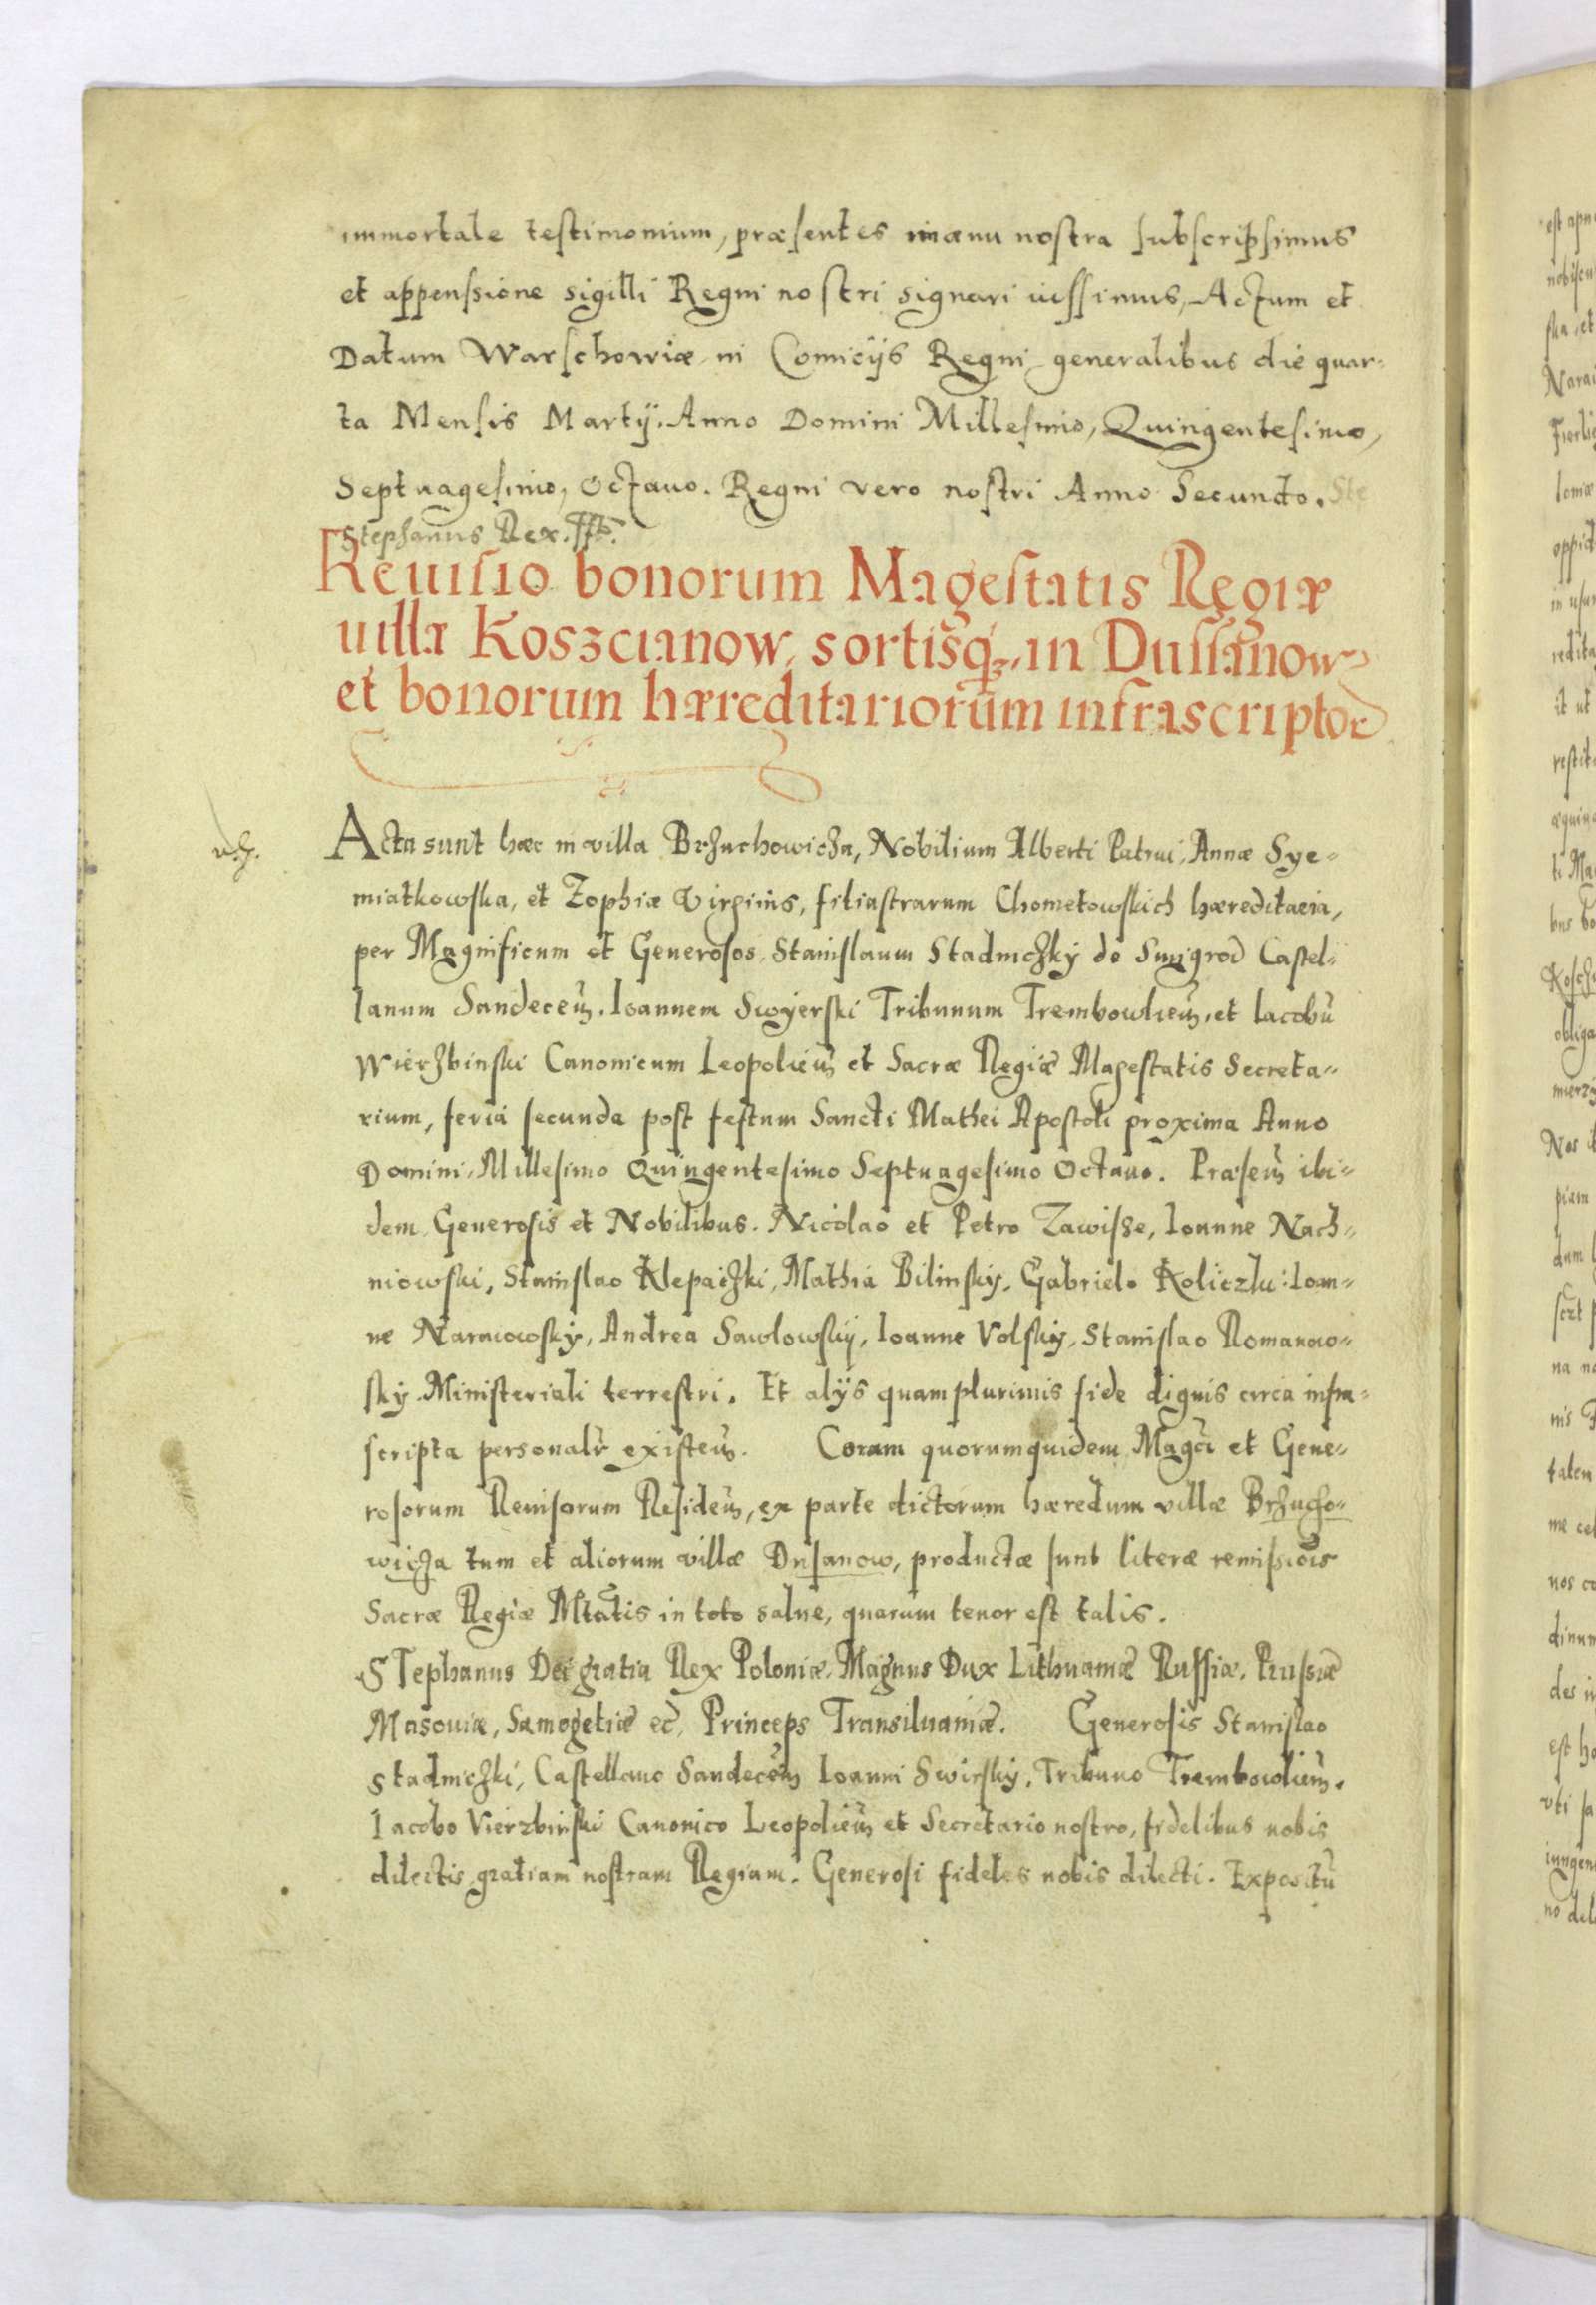 immortale testimonium, præsentes manu nostra subscripsimus
et appensione sigilli Regni nostri signari iussimus, Actum et
Datum Warschowiæ in Comicijs Regni generalibus die quar-
ta Mensis Martij. Anno Domini Millesimo, Quingentesimo,
Septuagesimo, Octauo. Regni vero nostri Anno Secundo. Ste
Stephanus Rex. sst.
Reuisio bonorum Magestatis Regiæ
uillæ Koszcianow, sortisq́;, in Dussanow
et bonorum hæreditariorum infrascriptor
Acta sunt hæc in villa Brzuchowicza, Nobilium Alberti Patrui, Annæ Sye-
miatkowska, et Zophiæ Virginis, filiastrarum Chometowskich hæreditaria,
per Magnificum et Generosos, Stanislaum Stadniczky de Smigrod Castel-
lanum Sandeceñ. Ioannem Swyerski Tribunum Trembowlieñ, et Iacobũ
Wierzbinski Canonicum Leopolieñ et Sacræ Regiæ Magestatis Secreta-
rium, feria secunda post festum Sancti Mathei Apostoli proxima Anno
Domini, Millesimo Quingentesimo Septuagesimo Octauo. Præseñ ibi-
dem Generosis et Nobilibus. Nicolao et Petro Zawisse, Ioanne Nach-
niowski, Stanislao Klepaczki, Mathia Bilinsky, Gabriele Koliczku: Ioan-
ne Naraiowsky, Andrea Sawlowsky, Ioanne Volsky, Stanislao Romanow-
sky Ministeriali terrestri. Et alijs quamplurimis fide dignis circa infra-
scripta personalr̃ existeñ. Coram quorumquidem Magcĩ et Gene-
rosorum Reuisorum Resideñ, ex parte dictorum hæredum villæ Brzucho-
wicza tum et aliorum villæ Dusanow, productæ sunt literæ remissiõis
Sacræ Regiæ Mtãtis in toto saluæ, quarum tenor est talis.
STephanus Dei gratia Rex Poloniæ, Magnus Dux Lithuaniæ Russiæ, Prussiæ
Masouiæ, Samogetiæ ec̃, Princeps Transiluaniæ. Generosis Stanislao
Stadniczki, Castellano Sandeceñ Ioanni Swirsky, Tribuno Trembowlieñ.
Iacobo Vierzbinski Canonico Leopolieñ et Secretario nostro, fidelibus nobis
dilectis gratiam nostram Regiam. Generosi fideles nobis dilecti. Expositũ